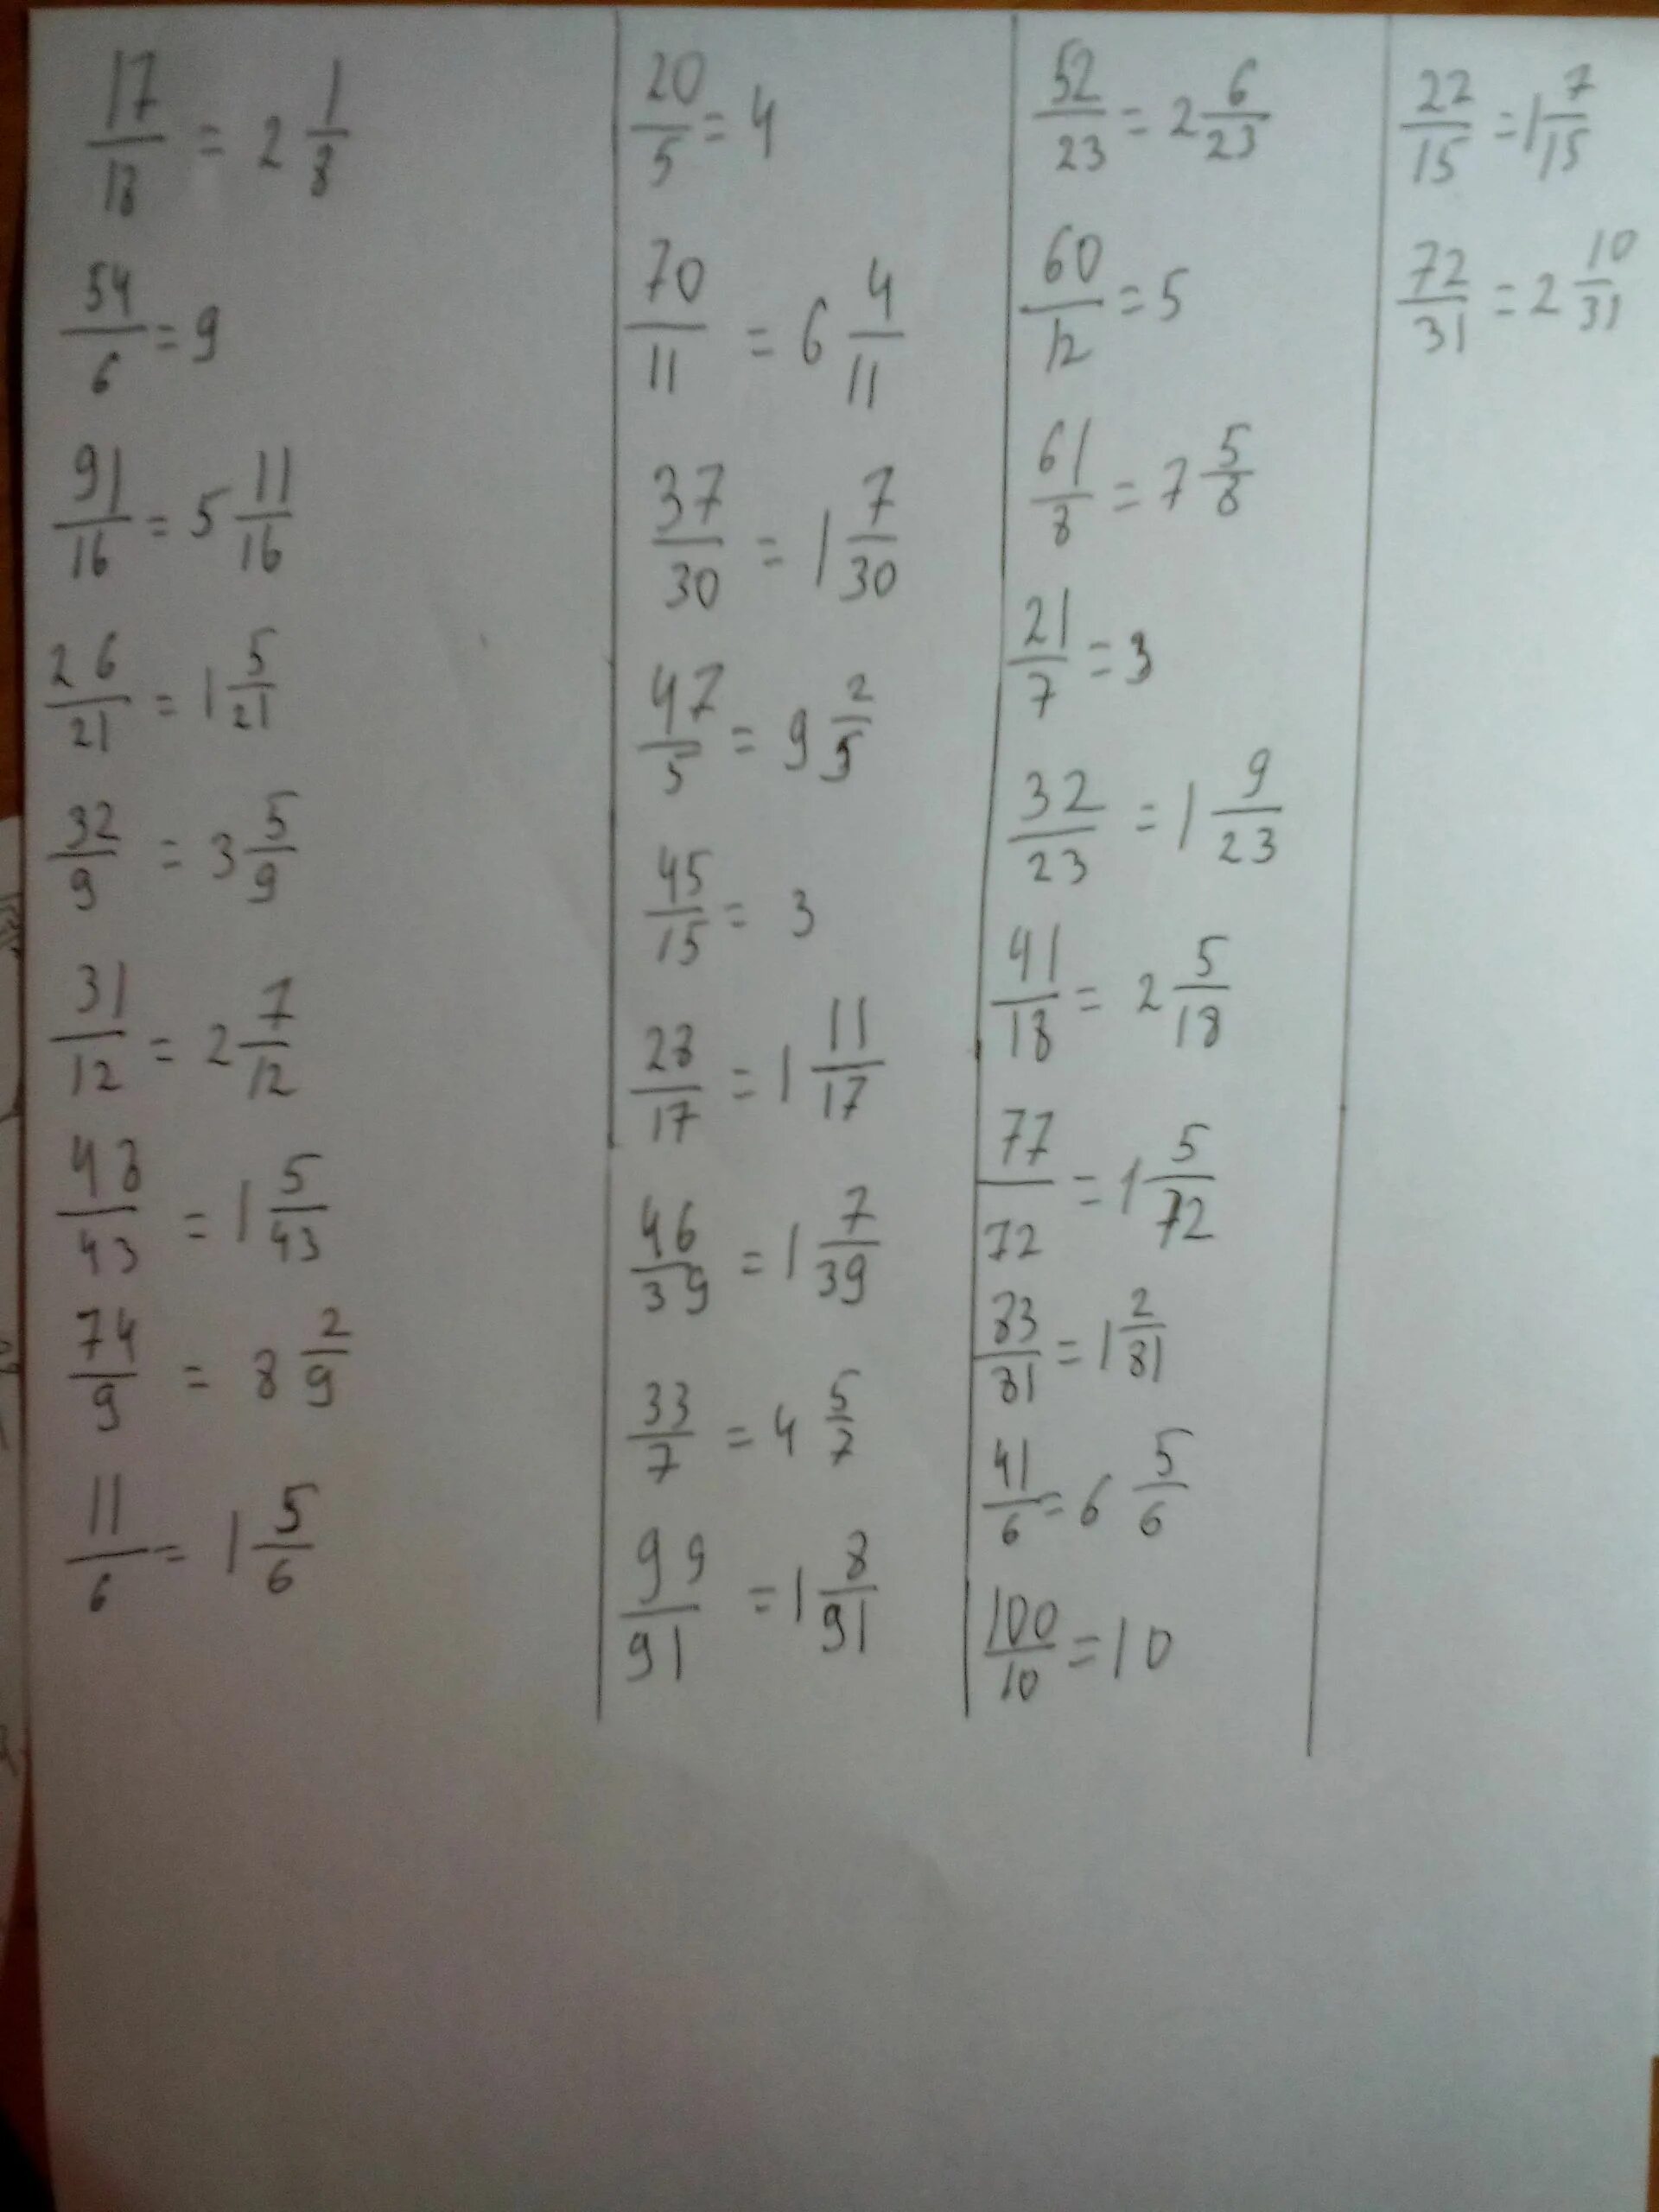 17/18 = 2 1/8
54/6 = 9
91/16 = 5 11/16
26/21 = 1 5/21
32/9 = 3 5/9
31/12 = 2 7/12
48/43 = 1 5/43
74/9 = 8 2/9
11/6 = 1 5/6
20/5 = 4
70/11 = 6 4/11
37/30 = 1 7/30
47/5 = 9 2/5
45/15 = 3
28/17 = 1 11/17
46/39 = 1 7/39
33/7 = 4 5/7
99/91 = 1 8/91
52/23 = 2 6/23
60/12 = 5
61/8 = 7 5/8
21/7 = 3
32/23 = 1 9/23
41/18 = 2 5/18
77/72 = 1 5/72
83/81 = 1 2/81
41/6 = 6 5/6
100/10 = 10
22/15 = 1 7/15
72/31 = 2 10/31